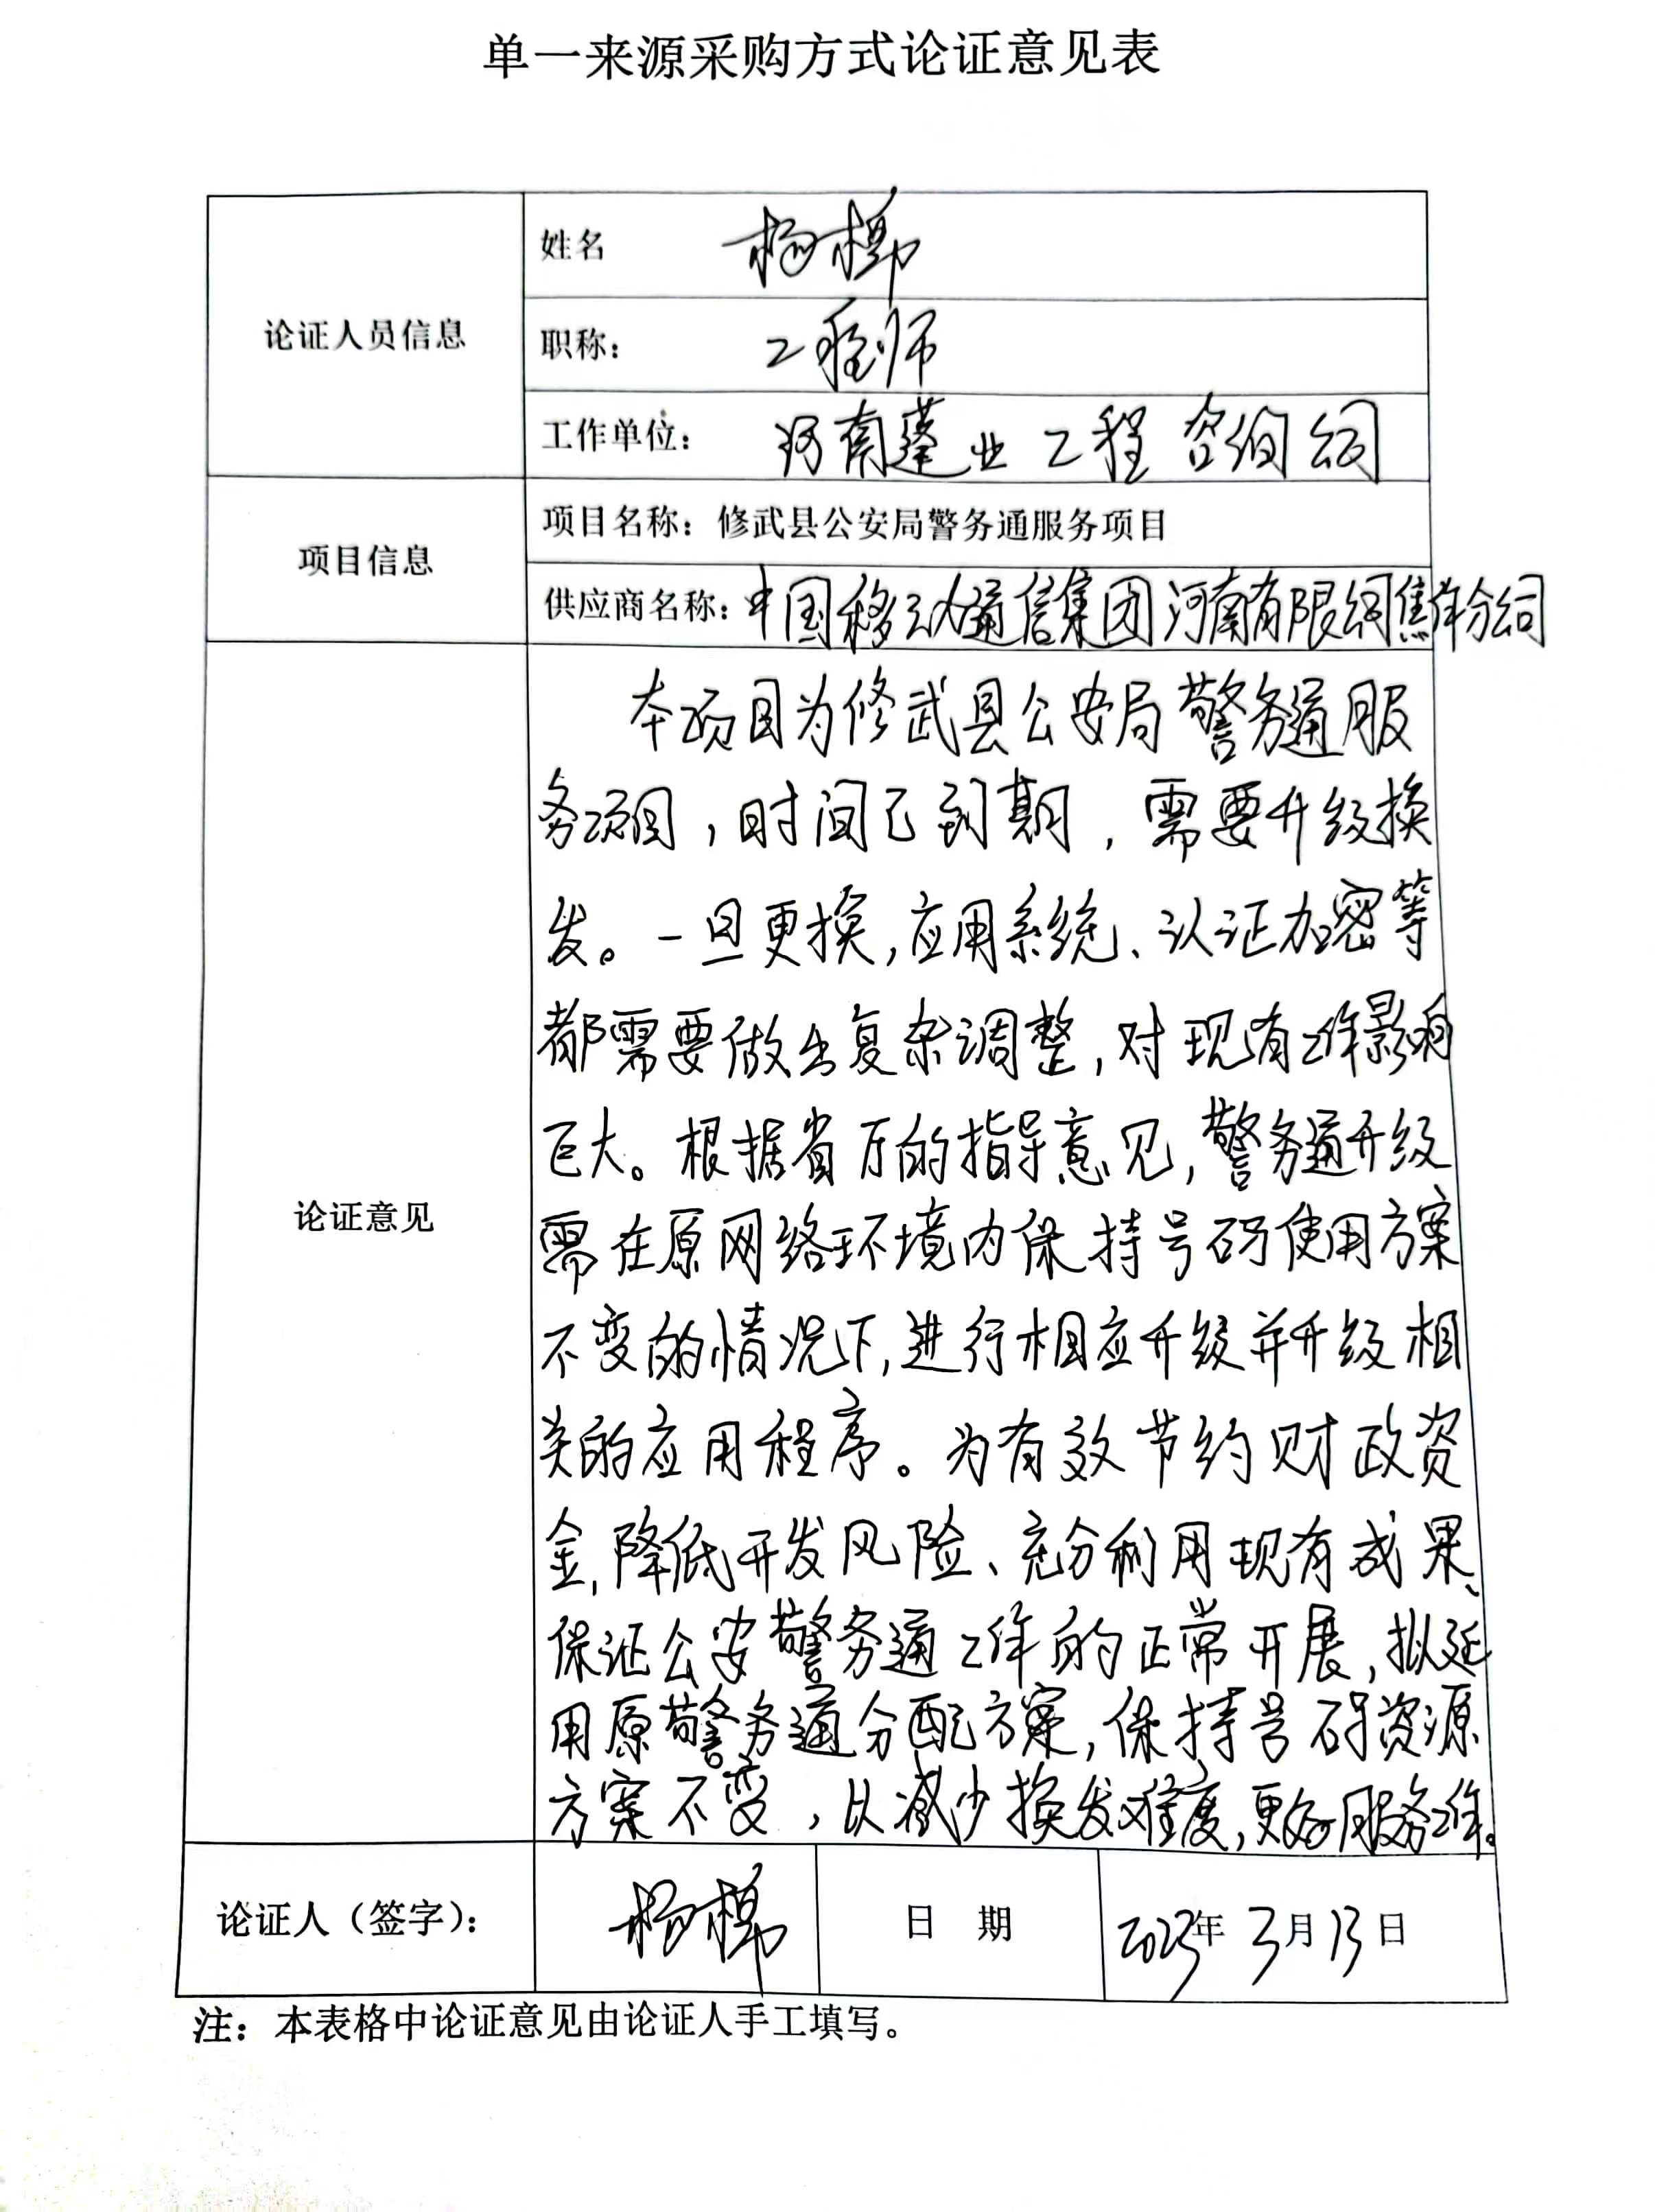 单一来源采购方式论证意见表
论证人员信息
姓名 杨
职称： 工程师
工作单位： 河南蓬业工程咨询公司
项目信息
项目名称：修武县公安局警务通服务项目
供应商名称：中国移动通信集团河南有限公司焦作分公司
论证意见
本项目为修武县公安局警务通服
务项目，时间已到期，需要升级换
发。一旦更换，应用系统、认证加密等
都需要做出复杂调整，对现有工作影响
巨大。根据省厅的指导意见，警务通升级
需在原网络环境内保持号码使用方案
不变的情况下，进行相应升级并升级相
关的应用程序。为有效节约财政资
金，降低开发风险、充分利用现有成果、
保证公安警务通工作的正常开展，拟延
用原警务通分配方案，保持号码资源
方案不变，以减少换发难度，更好服务工作。
论证人（签字）： 杨
日 期
2023年3月13日
注：本表格中论证意见由论证人手工填写。